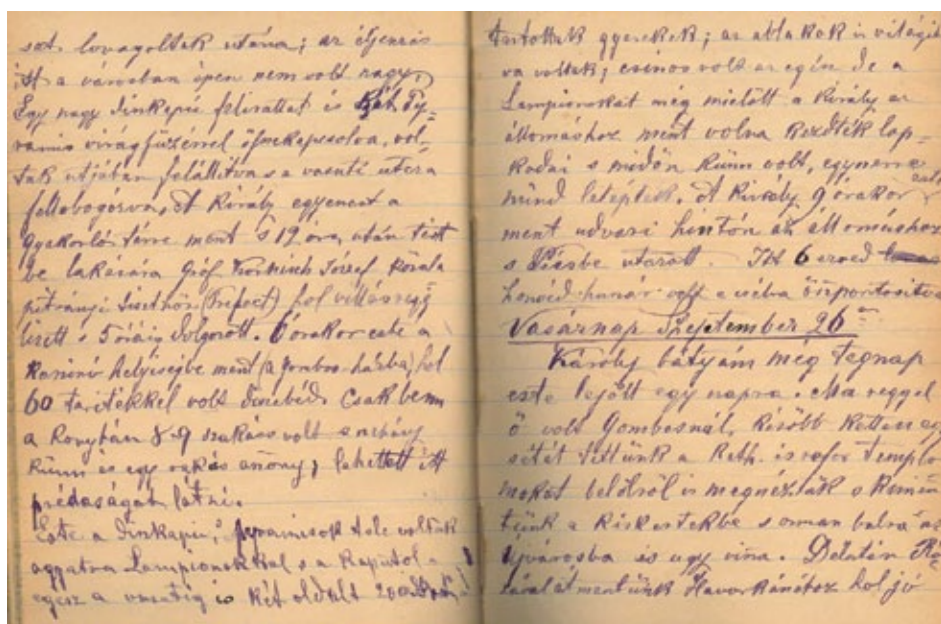 sat lovagoltak utána; az éljenzés
itt a városban épen nem volt nagy,
Egy nagy dinkapu felirattal és két Py-
ramis virágfüzérrel összekapcsolva, vol-
tak utjában felállitva s a vasuti utcza
fellobogózva, A Király egyenest a
gyakorló térre ment s 12 óra után tért
be lakására Gróf József
hol villásreg
5 óráig dolgozott. 6 órakor este a
Kaszinó helyiségbe ment (a gombos házba) hol
60 teritékkel volt diszebéd. Csak benn
a Konyhán 8-9 szakács volt s néhány
künn és egy rakás asszony; lehetett itt
prédaságát látni.
Este a Dinkapu, pyramisok tele voltak
aggatva Lampionokkal s a kaputól
egész a vasutig is két oldalt 200
tartottak gyerekek; az ablakok is világit
va voltak; csinos volt az egész de a
Lampionokat még mielőtt a Király az
állomáshoz ment volna kezdték lop-
kodni s midőn künn volt, egyszerre
mind letépték. A Király 9 órakor
ment udvari hintón az állomáshoz
s Bécsbe utazott. Itt 6 ezred
honvéd huszár volt e célra öszpontositva
Vasárnap Szeptember 26
Károly bátyám még tegnap
este lejött egy napra. Ma reggel
ő volt Gombosnál, később ketten
sétát tettünk a Kath. is refor Templo
mokat belölről is megnéztük s kimen
tünk a kiskertekbe s onnan balra az
Ujvárosba is ugy vissza. Délután
mentünk hol jó